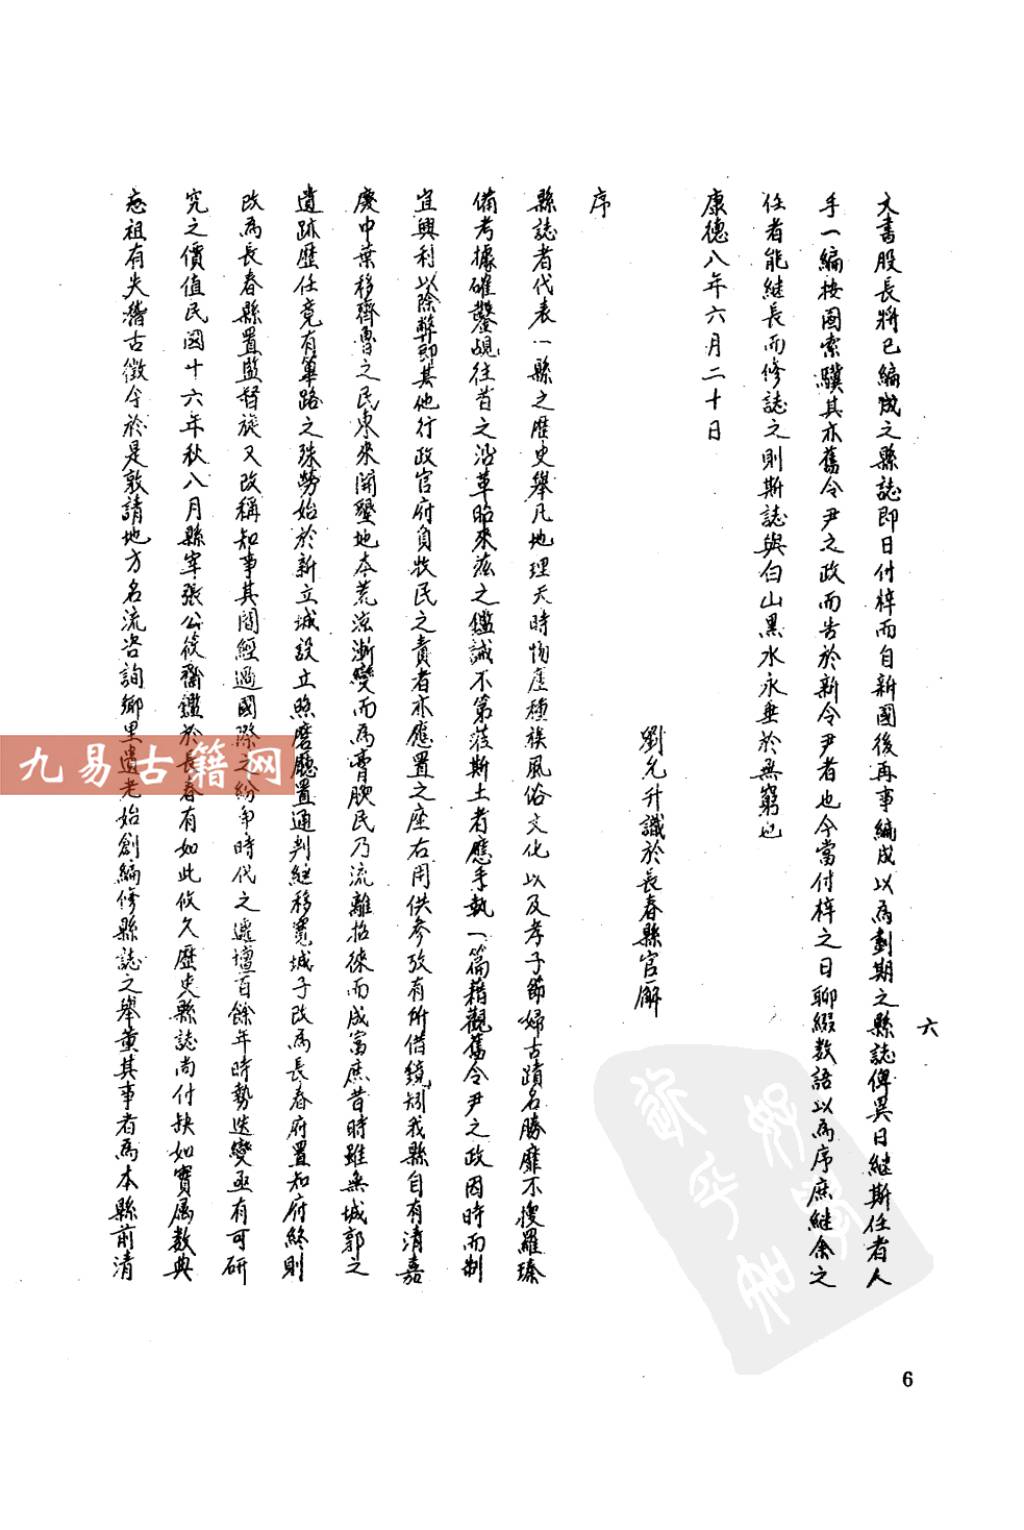 六
文書股長將已編成之縣誌即日付梓而自新國後再事編成以為劃期之縣誌俾異日繼斯任者人
手一編按圖索驥其亦舊令尹之政而告於新令尹者也今當付梓之日聊綴数語以為序庶繼余之
任者能継長而修誌之則斯誌與白山黑水永垂於無窮也
康德八年六月二十日
劉允升識於長春縣官廨
序
縣誌者代表一縣之歷史舉凡地理天時物產種族風俗文化以及孝子節婦古蹟名勝靡不搜羅臻
備考據確鑿覘往昔之沿革昭來茲之鑑誡不第蒞斯土者應手執一篇藉觀舊令尹之政因時而制
宜興利以除弊即其他行政官府負牧民之責者亦應置之座右用供參攷有所借鏡矧我縣自有清嘉
慶中葉移齊魯之民東來開墾地本荒涼漸變而為膏腴民乃流離招徠而成富庶昔時雖無城郭之
遺跡歷任竟有篳路之殊勞始於新立城設立照磨廳置通判繼移寬城子改為長春府置知府終則
改為長春縣置監督旋又改稱知事其間經過國際之紛爭時代之遞嬗百餘年時勢迭變亟有可研
究之價值民国十六年秋八月縣宰張公筱齋鑑於長春有如此攸久歷史縣誌尚付缺如實属数典
忘祖有失稽古徵今於是敦請地方名流咨詢鄉里遺老始創編修縣誌之舉董其事者為本縣前清
九易古籍网
6